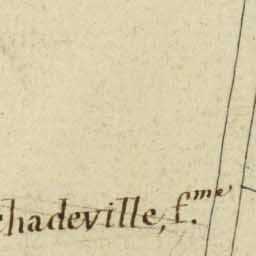 chadeville, f.me